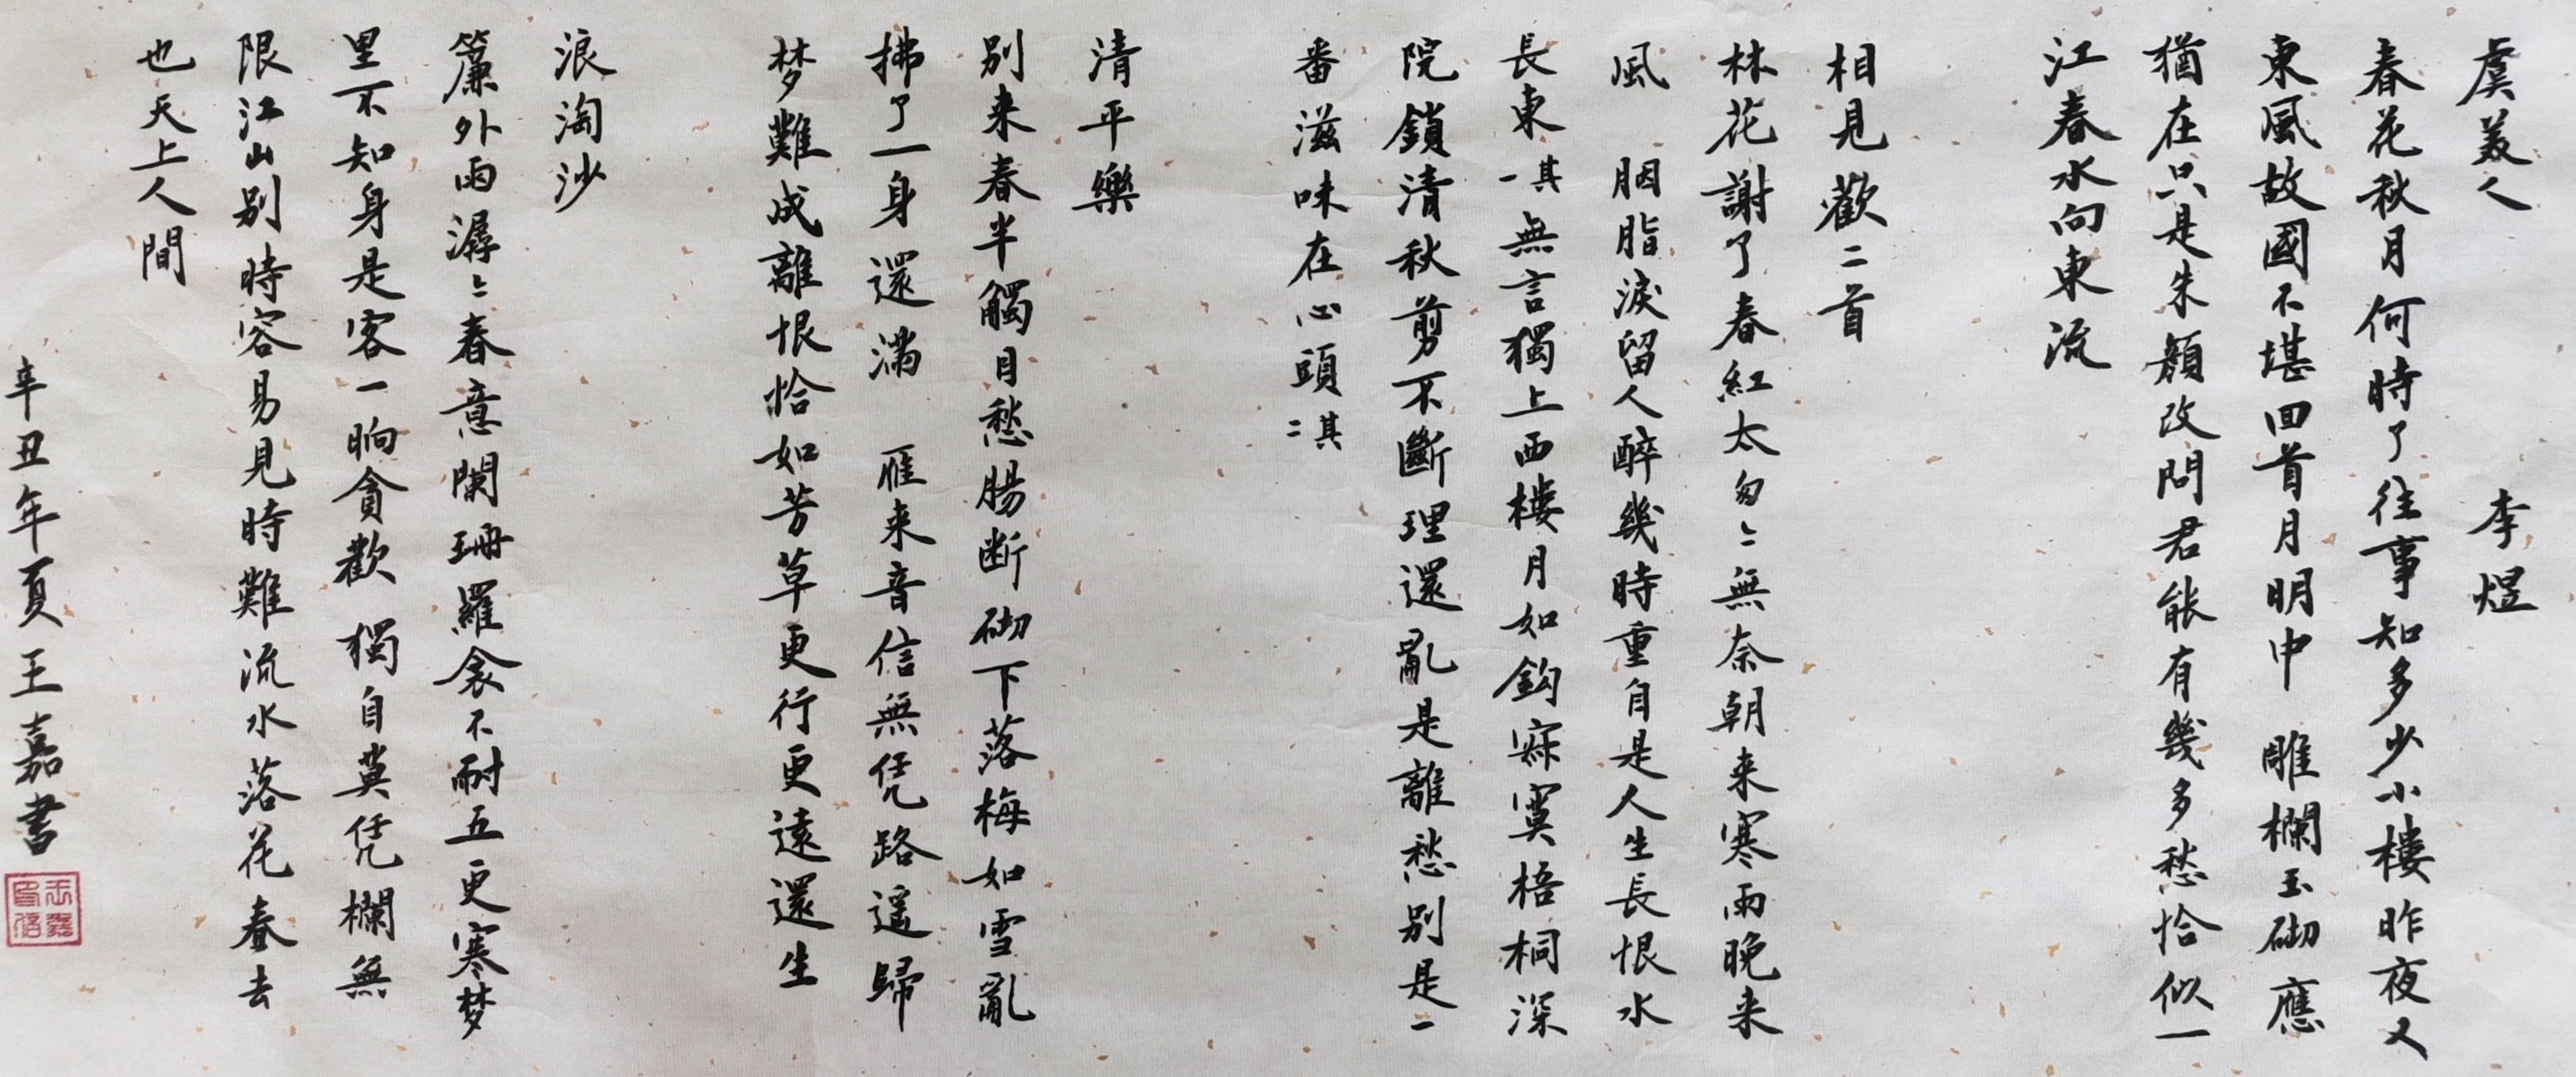 虞美人 李煜
春花秋月何時了往事知多少小樓昨夜又
東風故國不堪回首月明中 雕欄玉砌應
猶在只是朱顏改問君能有幾多愁恰似一
江春水向東流
相見歡二首
林花謝了春紅太匆〻無奈朝来寒雨晚来
風 胭脂淚留人醉幾時重自是人生長恨水
長東其一無言獨上西樓月如鈎寂寞梧桐深
院鎖清秋剪不斷理還亂是離愁别是一
番滋味在心頭其二
清平樂
别来春半觸目愁腸断砌下落梅如雪亂
拂了一身還滿 雁来音信無凭路遥歸
梦難成離恨恰如芳草更行更遠還生
浪淘沙
簾外雨潺〻春意闌珊羅衾不耐五更寒梦
里不知身是客一晌貪歡 獨自莫凭欄無
限江山别時容易見時難流水落花春去
也天上人間
辛丑年夏王嘉書